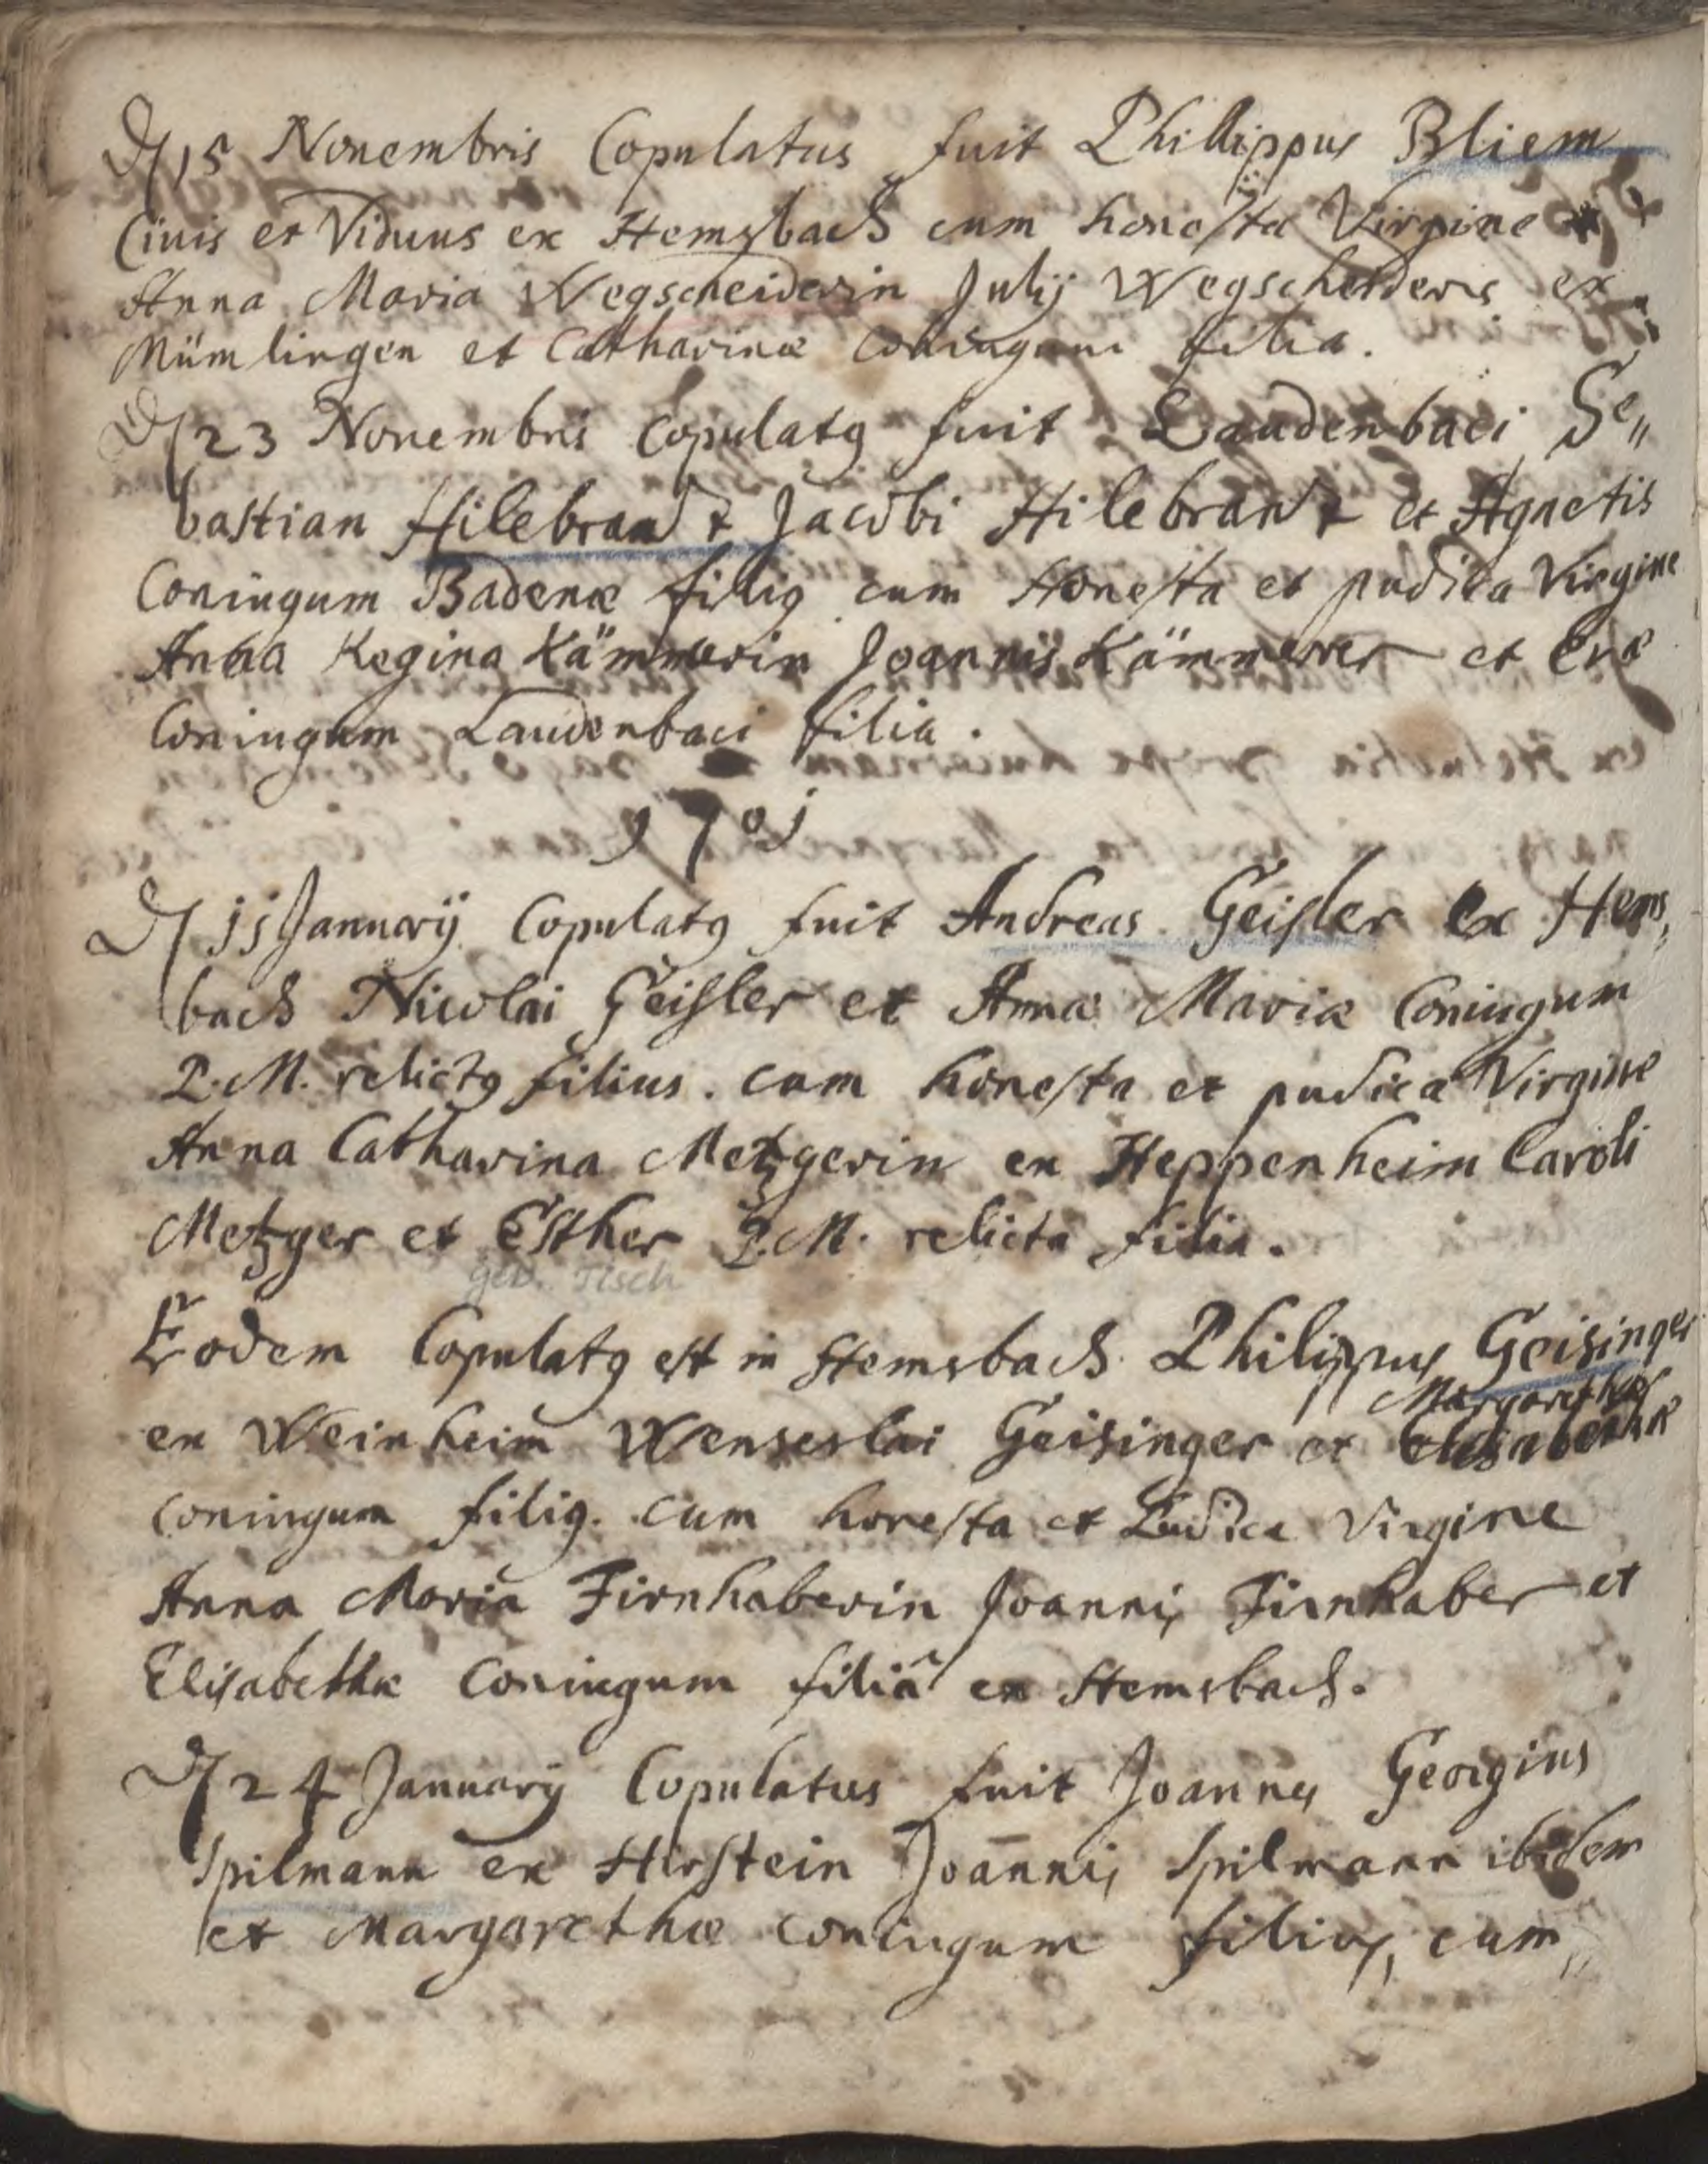 D 15 Novembris Copulatus fuit Philippus Bliem
Civis et Viduus ex Hemsbach cum honesta Virgine
Anna Maria Wegscheiderin Julij Wegscheiders ex
Mümlingen et Catharinæ coniugum filia.
D 23 Novembris Copulatg fuit Laudenbaci Se„
bastian Hilebrandt Jacobi Hilebrandt et Agnetis
Coniugum Badenæ filig cum Honesta et pudica Virgine
Anna Regina Kämmerin Joannis Kämmerer et Evæ
Coniugum Laudenbaci filia.
1701
D 11 Januarij Copulatg fuit Andreas Geisler ex Hems„
bach Nicolai Geisler et Annæ Mariæ Coniugum
P.M. relictg filius. cum honesta et pudica Virgine
Anna Catharina Metzgerin ex Heppenheim Caroli
Metzger et Esther P.M. relicta filia.
geb. Tisch
Eodem Copulatg est in Hemsbach Philippus Geisinger
Margarethæ
ex Weinheim Wenseslai Geisinger et Elisabethæ
coniugum filig. cum honesta et Pudica Virgine
Anna Maria Firnhaberin Joannis Firnhaber et
Elisabethæ Coniugum filiâ ex Hemsbach.
D 24 Januarij Copulatus fuit Joannes Georgius
Spilmann ex Hirstein Joan̄nis Spilmann ibidem
et Margarethæ coniugum filius, cum„